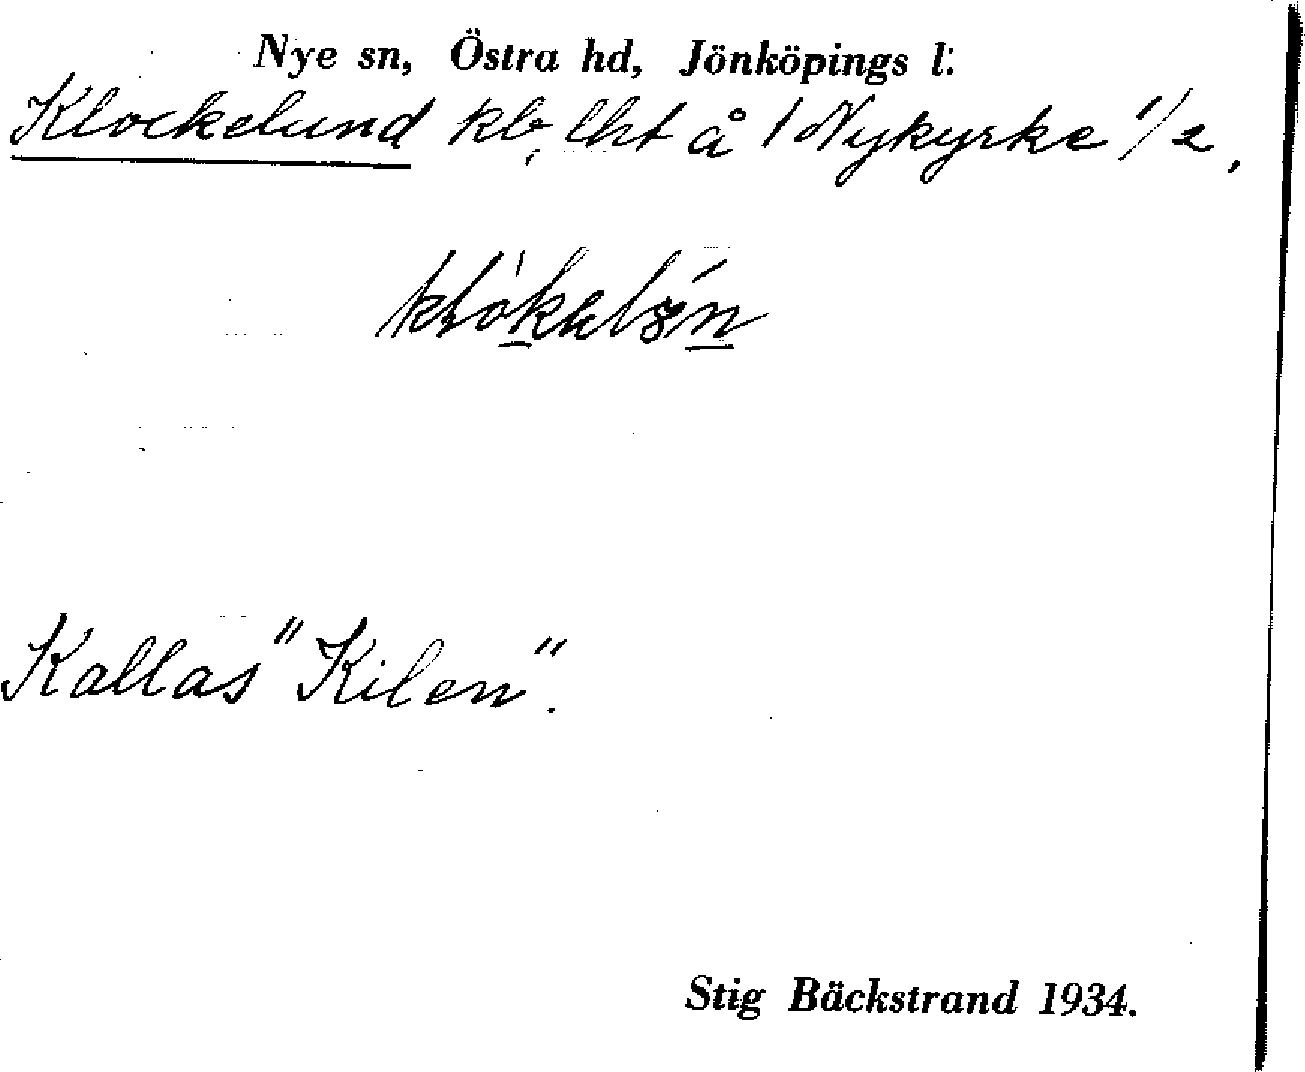 Nye sn, Östra hd, Jönköpings l.
Klockelund kb, lht å 1 Nykyrke 1/2,
Kallas "Kilen".
Stig Bäckstrand 1934.